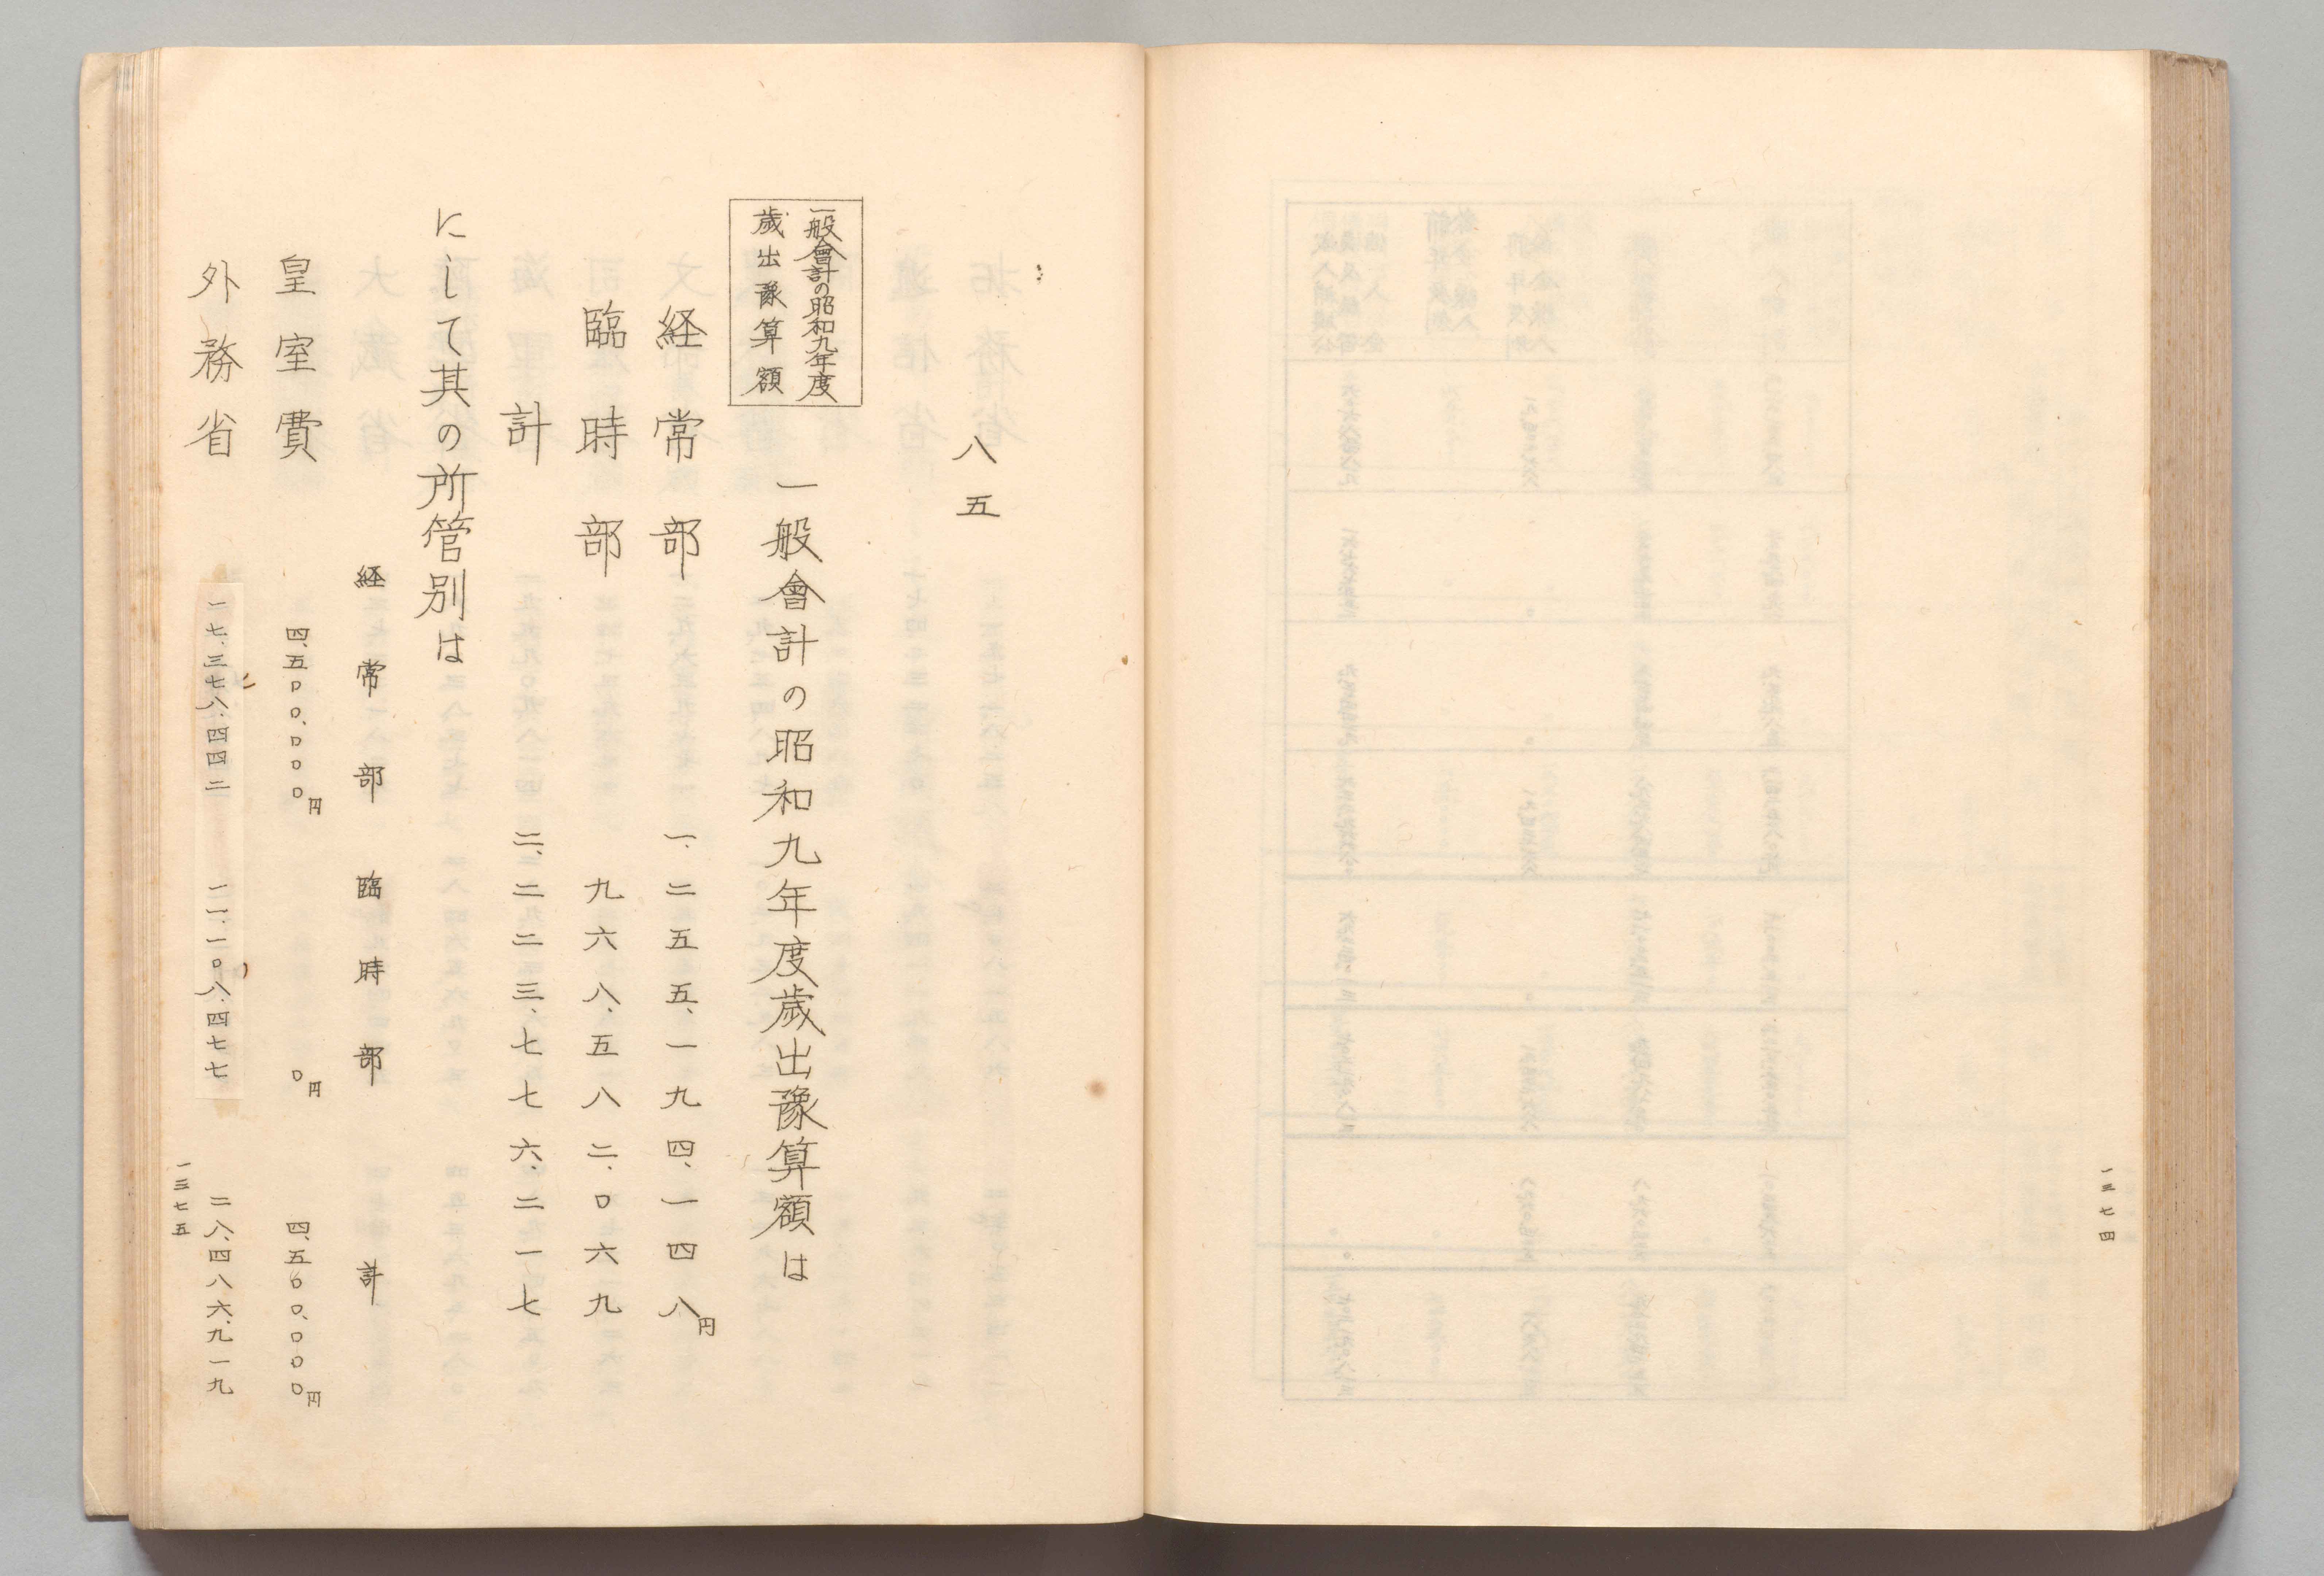 一三七四
八五
一般會計の昭和九年度
歳出豫算額
一般會計の昭和九年度歳出豫算額は
経常部 一、二五五、一九四、一四八円
臨時部 九六八、五八二、〇六九
計 二、二二三、七七六、二一七
にして其の所管別は
経常部 臨時部 計
皇室費 四、五〇〇、〇〇〇円 〇円 四、五〇〇、〇〇〇円
外務省 一七、三七八、四四二 一一、一〇八、四七七 二八、四八六、九一九
一三七五